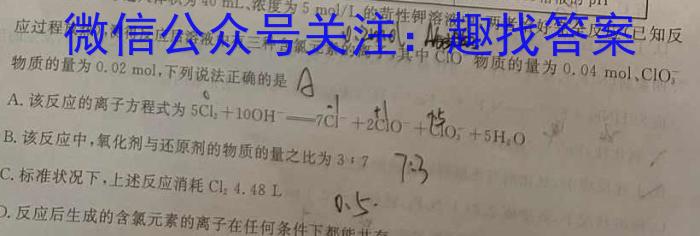 40 mL、浓度为 5 mol/L 的苛性钾溶
pH
微信公众号关注：趣找答案
应过程
已知反
其中 ClO⁻ 物质的量为 0.04 mol、ClO₃⁻
物质的量为 0.02 mol，下列说法正确的是 A
0 -1 +1 +5
A. 该反应的离子方程式为 5Cl₂+10OH⁻══7Cl⁻+2ClO⁻+ClO₃⁻+5H₂O
B. 该反应中，氧化剂与还原剂的物质的量之比为 3∶7 7:3
C. 标准状况下，上述反应消耗 Cl₂ 4.48 L
0.5
D. 反应后生成的含氯元素的离子在任何条件下都能共存